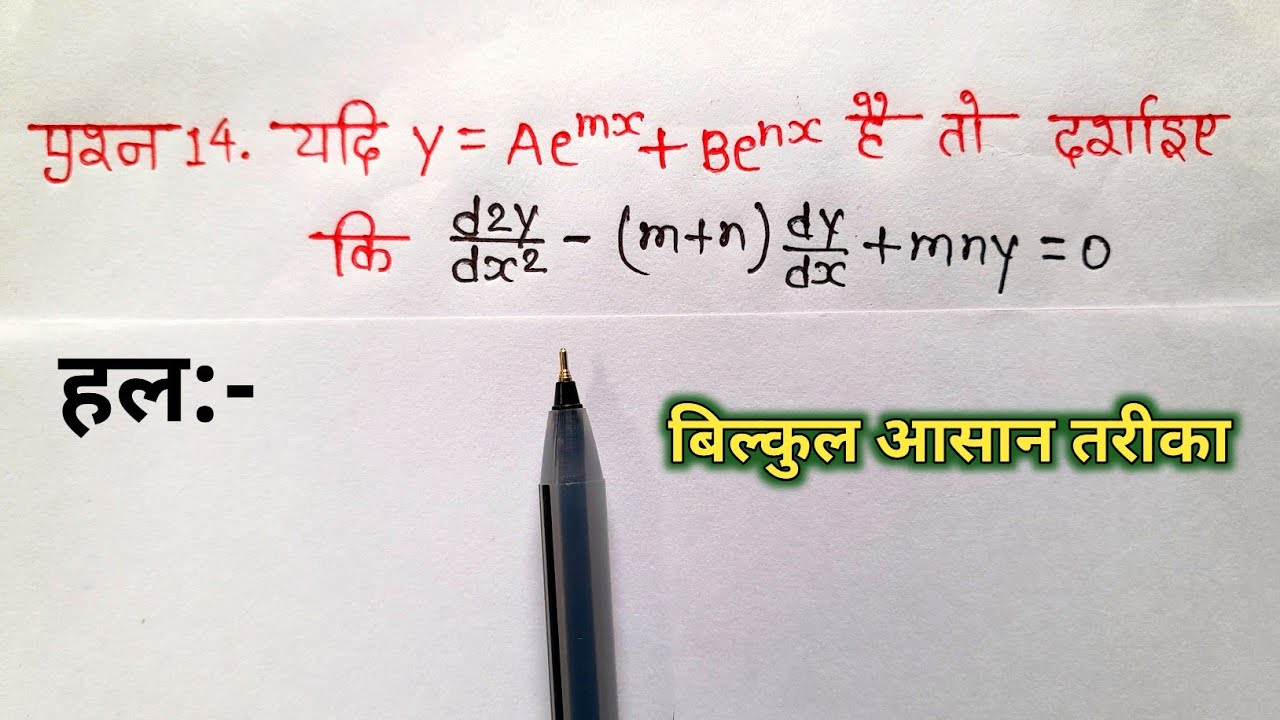 प्रश्न 14. यदि y = Ae^mx + Be^nx है तो दर्शाइए
कि d2y/dx² - (m+n) dy/dx + mny = 0
हल:-
बिल्कुल आसान तरीका